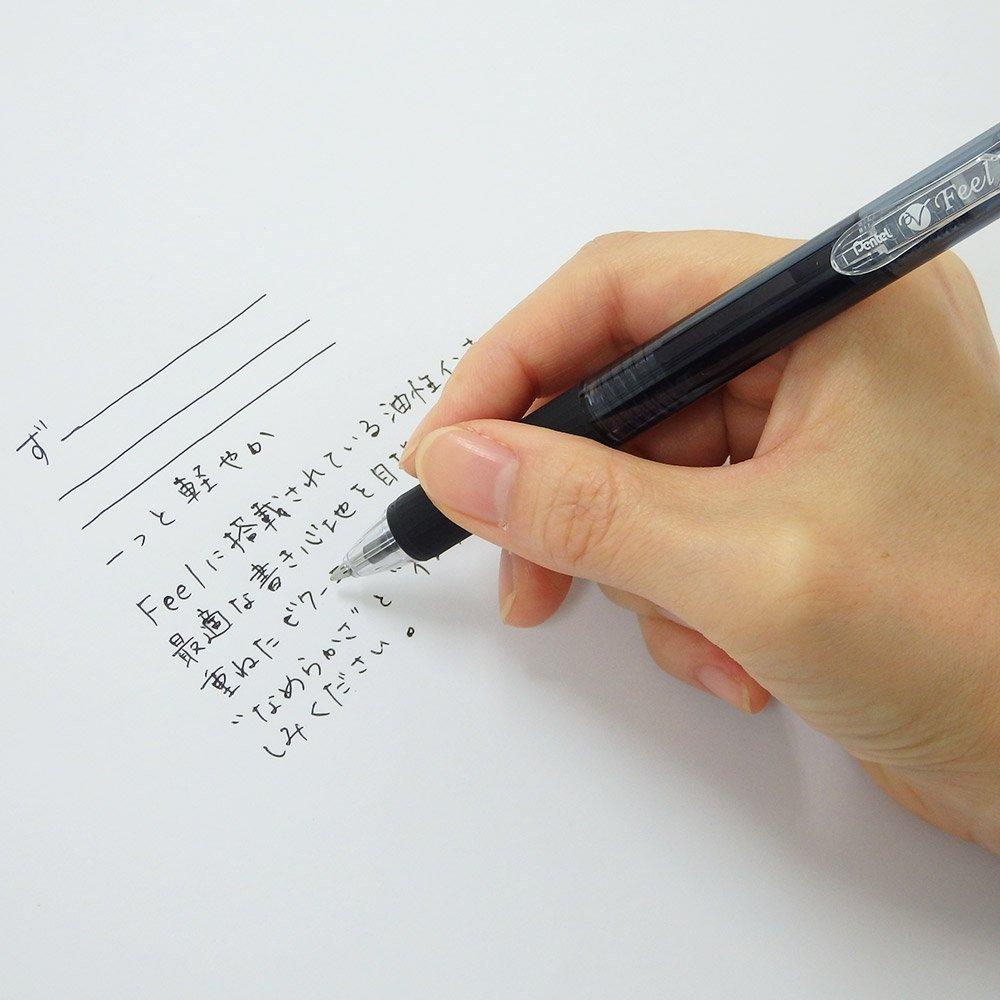 ず
ーっと軽やか
Feelに搭載されている油性インキ
最適な書き心地を目
重ねたビクー
"なめらかさ"と
しみください。
Pentel Feel